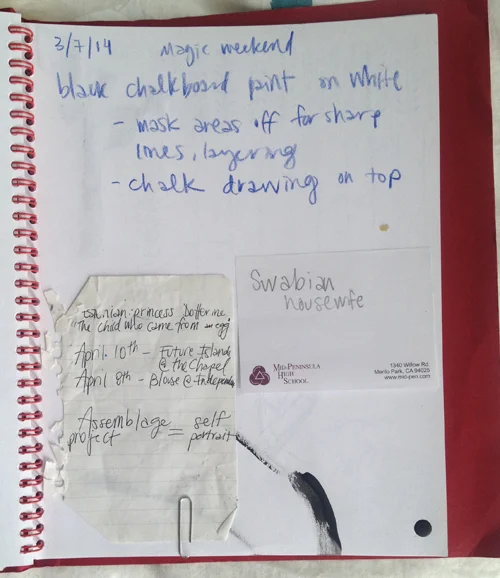 3/7/14 Magic weekend
black chalkboard paint on white
- mask areas off for sharp
lines, layering
- chalk drawing on top
Swabian
housewife
MID-PENINSULA
HIGH
SCHOOL
1340 Willow Rd.
Menlo Park, CA 94025
www.mid-pen.com
princess
"The child who came from an egg"
April 10th - Future Islands
@ the Chapel
April 8th - Blouse @ Independent
Assemblage = self
project portrait